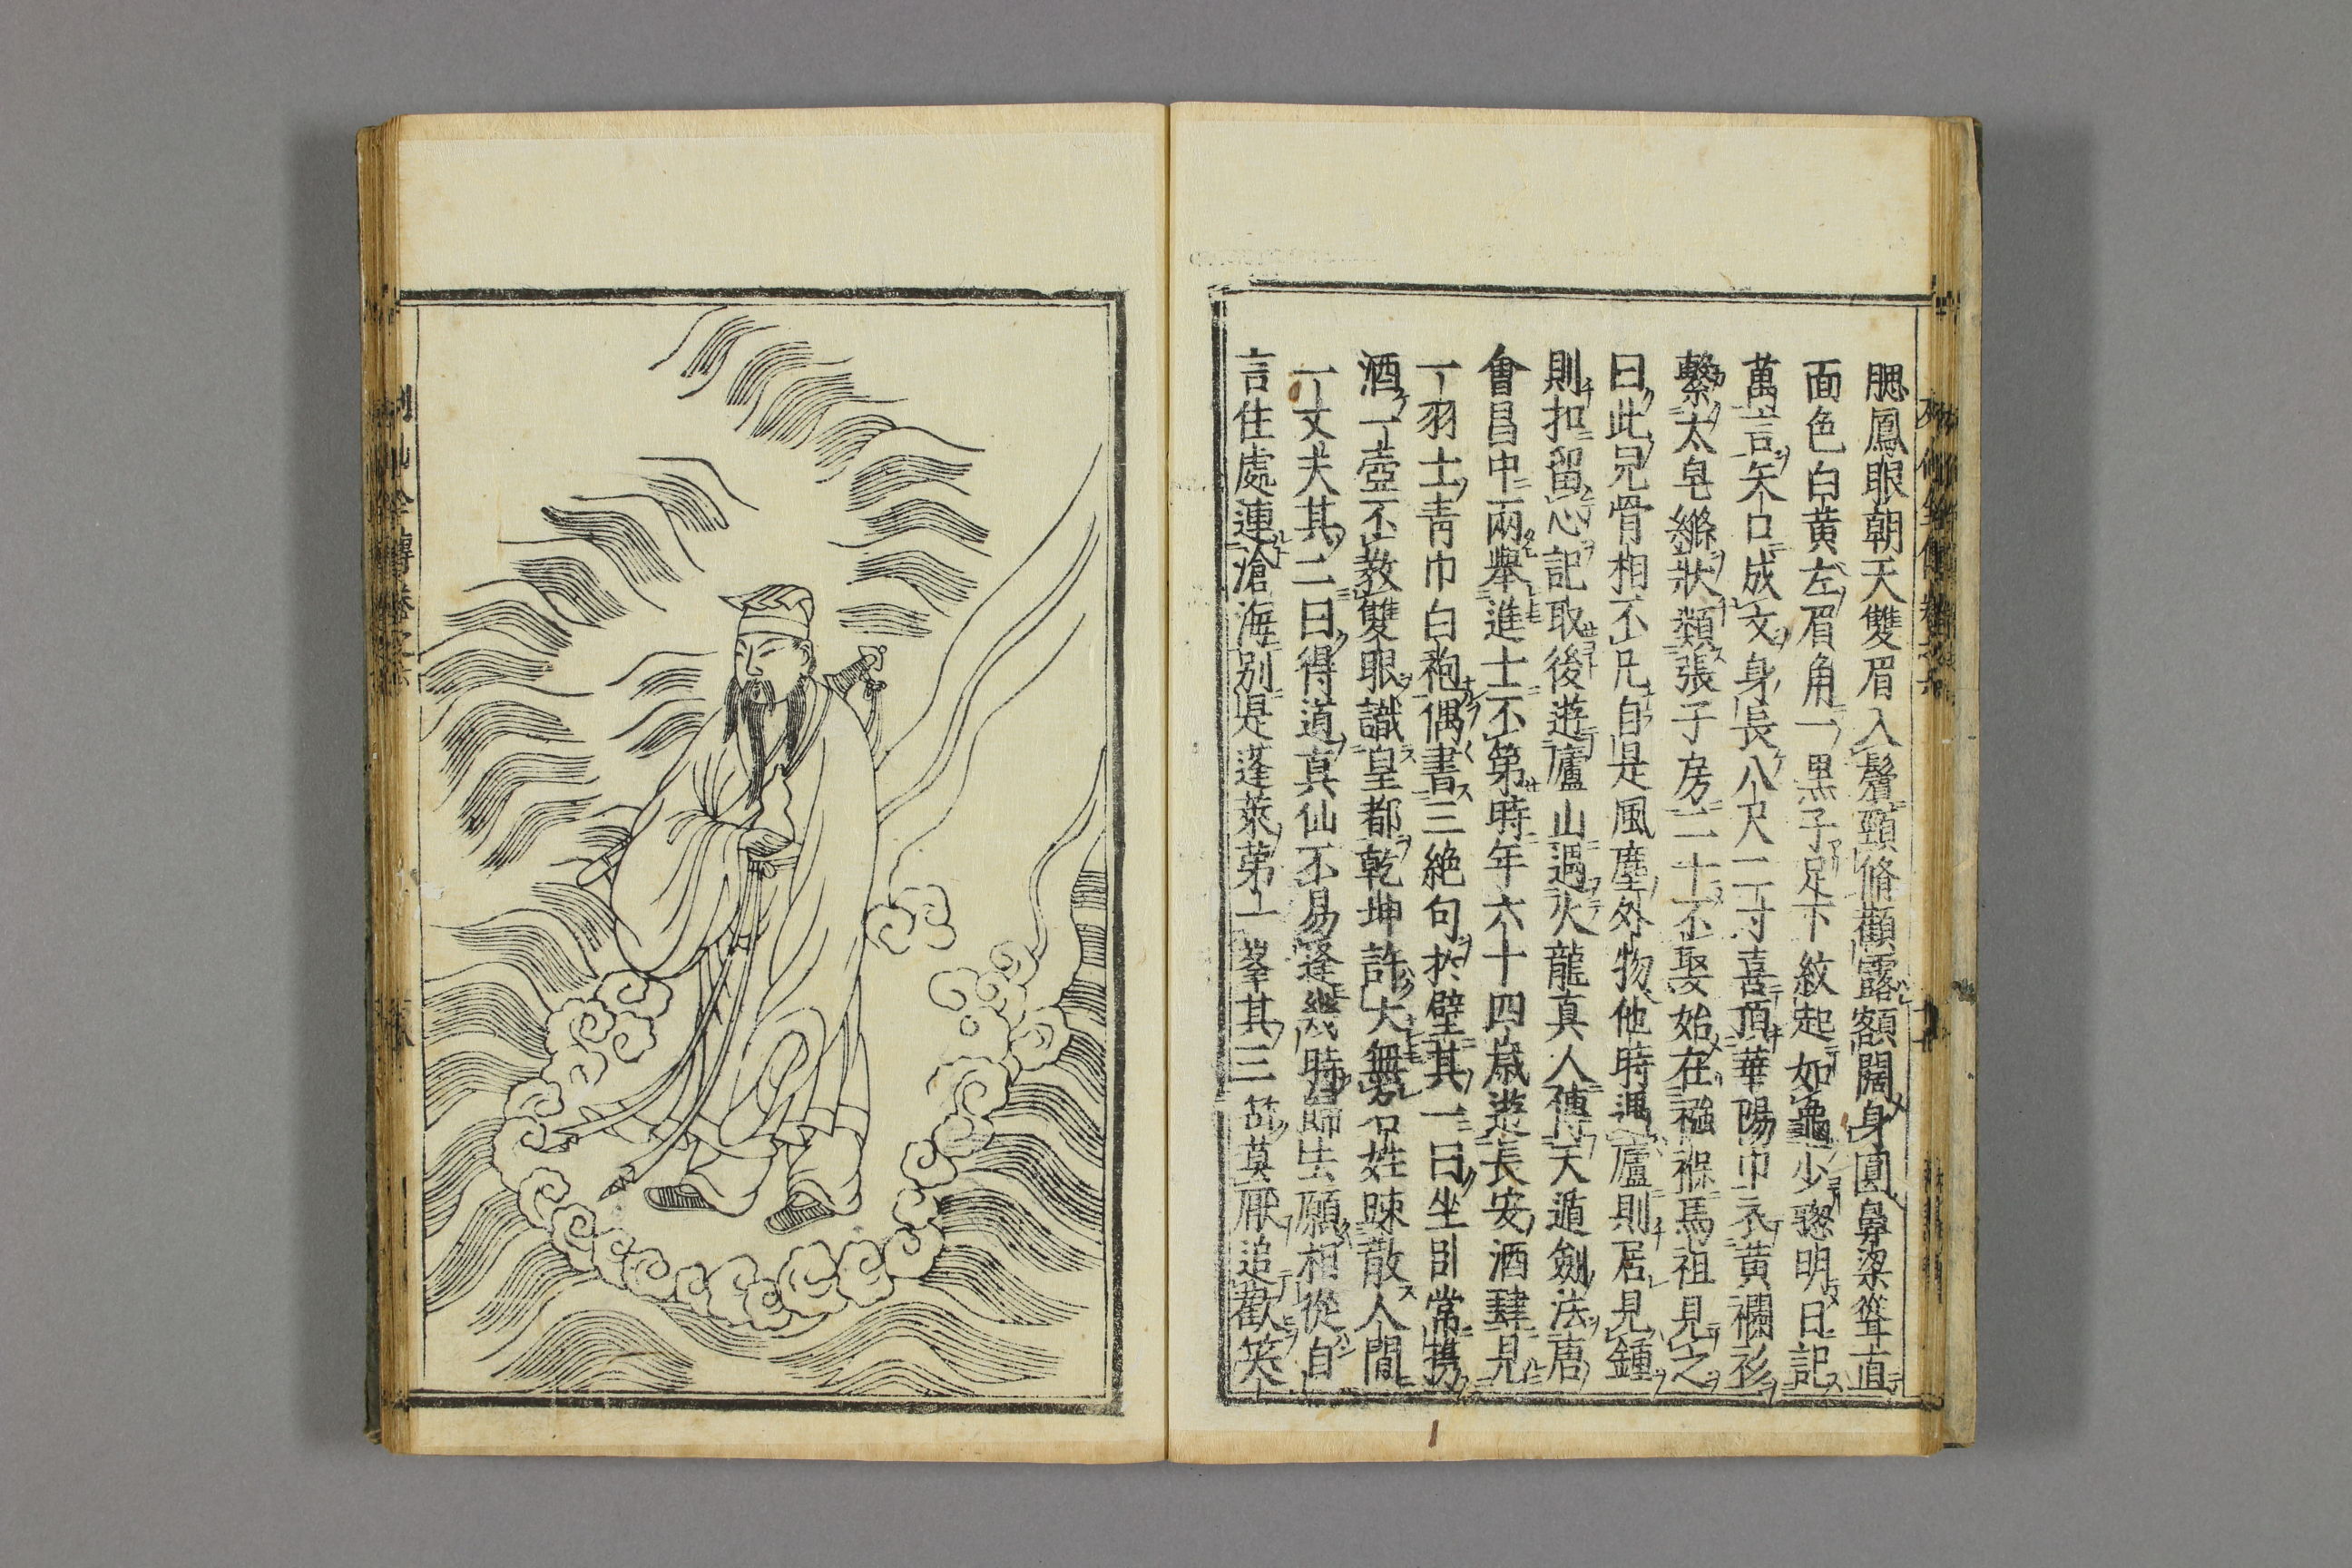 腮鳳眼朝天雙眉入鬢頸脩顴露額闊身圓鼻梁聳直
面色白黃左眉角一黑子足下紋起如龜少聰明日記
萬言矢口成文身長八尺二寸喜頂華陽巾衣黃襴衫
繫太皂絛狀類張子房二十不娶始在襁褓馬祖見之
曰此兒骨相不凡自是風塵外物他時遇廬則居見鍾
則扣留心記取後遊廬山遇火龍真人傳天遁劍法唐
會昌中兩舉進士不第時年六十四歲遊長安酒肆見
一羽士青巾白袍偶書三絕句於壁其一曰坐臥常携
酒一壺不教雙眼識皇都乾坤許大無名姓踈散人間
一丈夫其二曰得道真仙不易逢幾時歸去願相從自
言住處連滄海別是蓬萊第一峯其三曰莫厭追歡笑
列仙全傳卷之六